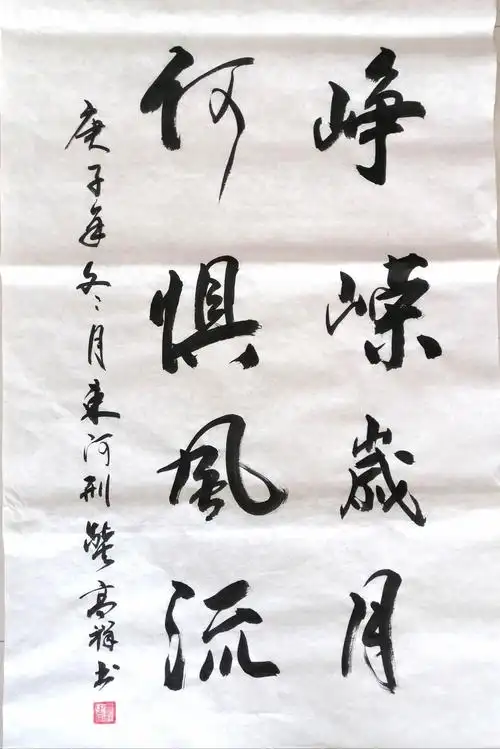 峥嵘歲月
何惧風流
庚子年冬月東河刑祥书